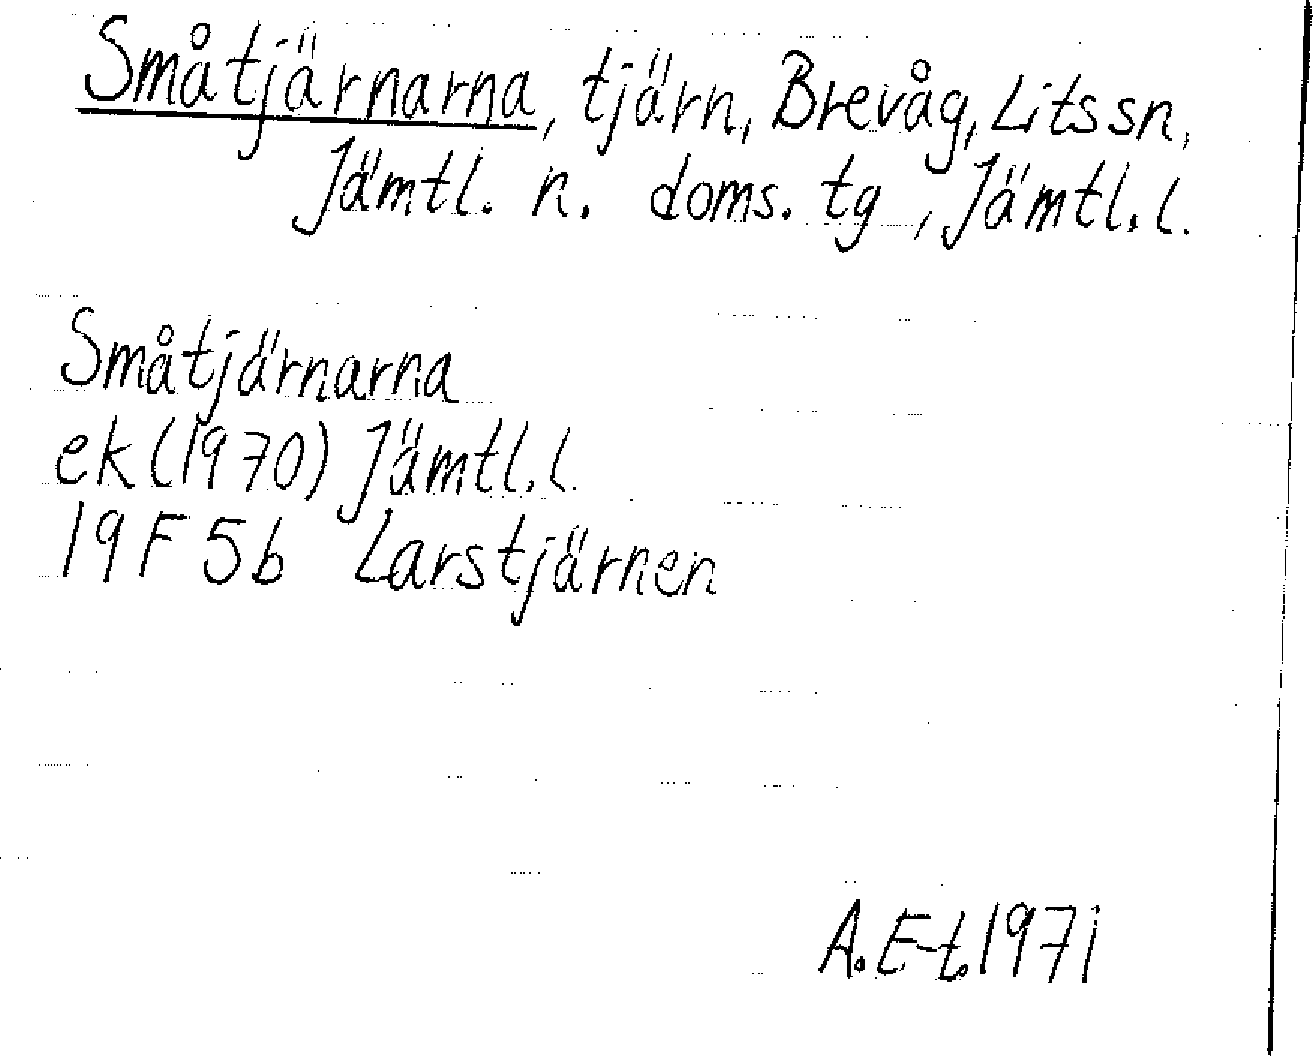 Småtjärnarna, tjärn, Brevåg, Lits sn,
Jämtl. n. doms. tg, Jämtl. l.
Småtjärnarna
ek (1970) Jämtl. l.
19F 5b Larstjärnen
A. E-t. 1971